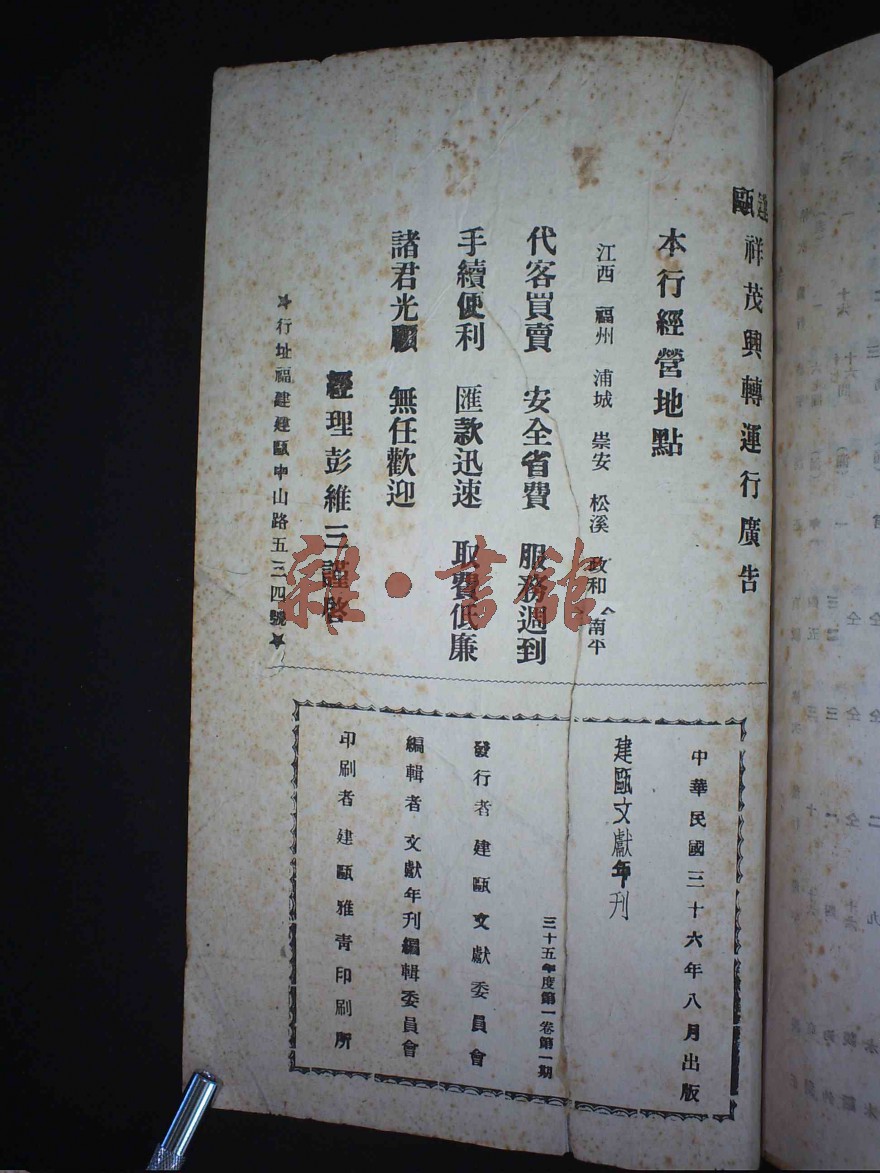 建甌祥茂興轉運行廣告
本行經營地點
江西 福州 浦城 崇安 松溪 政和 南平
代客買賣 安全省費 服務週到
手續便利 匯款迅速 取費低廉
諸君光顧 無任歡迎
經理彭維三謹啓
★行址福建建甌中山路五三四號★
中華民國三十六年八月出版
建甌文獻年刊
三十五年度第一卷第一期
發行者建甌文獻委員會
編輯者文獻年刊編輯委員會
印刷者建甌雅青印刷所
雜·書館